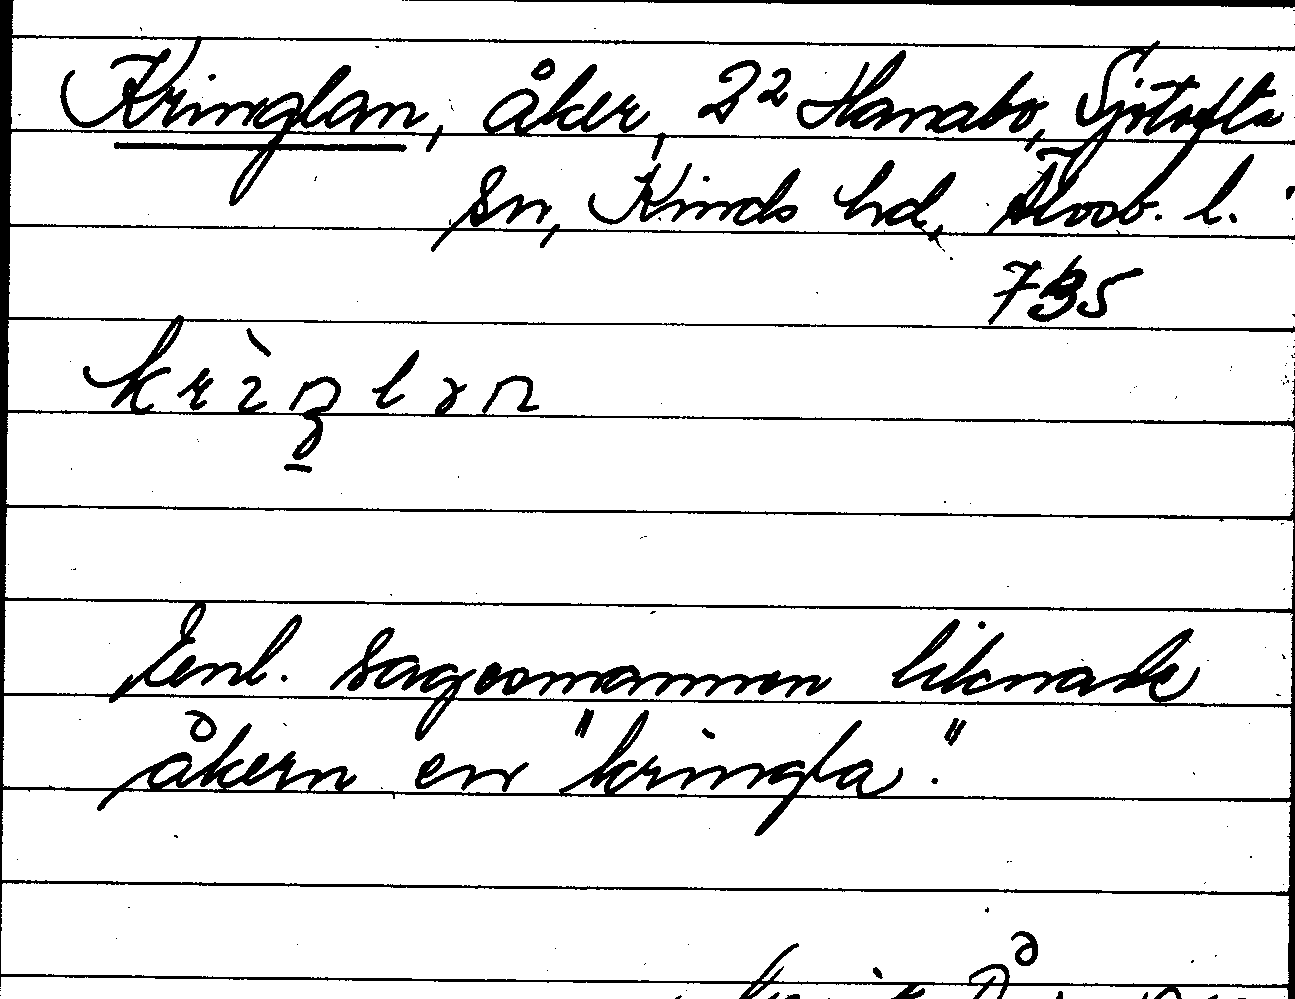 Kringlan, åker, 2² Hanabo, Sjötofta
sn, Kinds hd, Älvsb. l.
735
krìŋlan
Enl. sagesmannen liknade
åkern en "kringla".